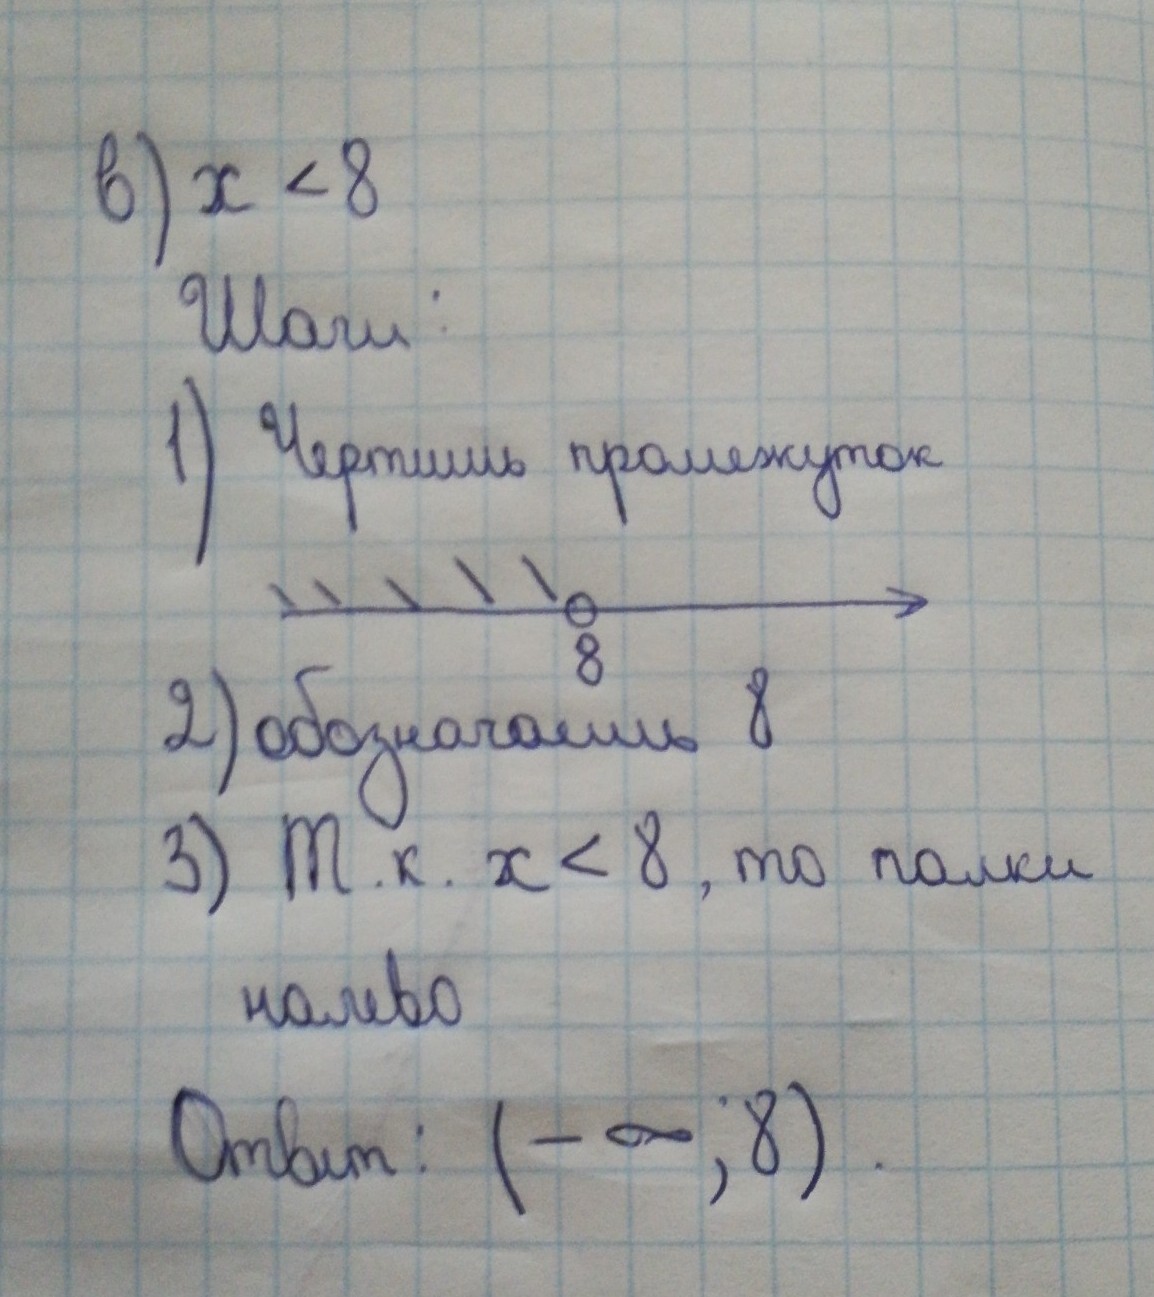 в) x < 8
Шаги:
1) Чертишь промежуток
8
2) обозначаешь 8
3) Т.к. x < 8, то палки
налево
Ответ: (-∞; 8).